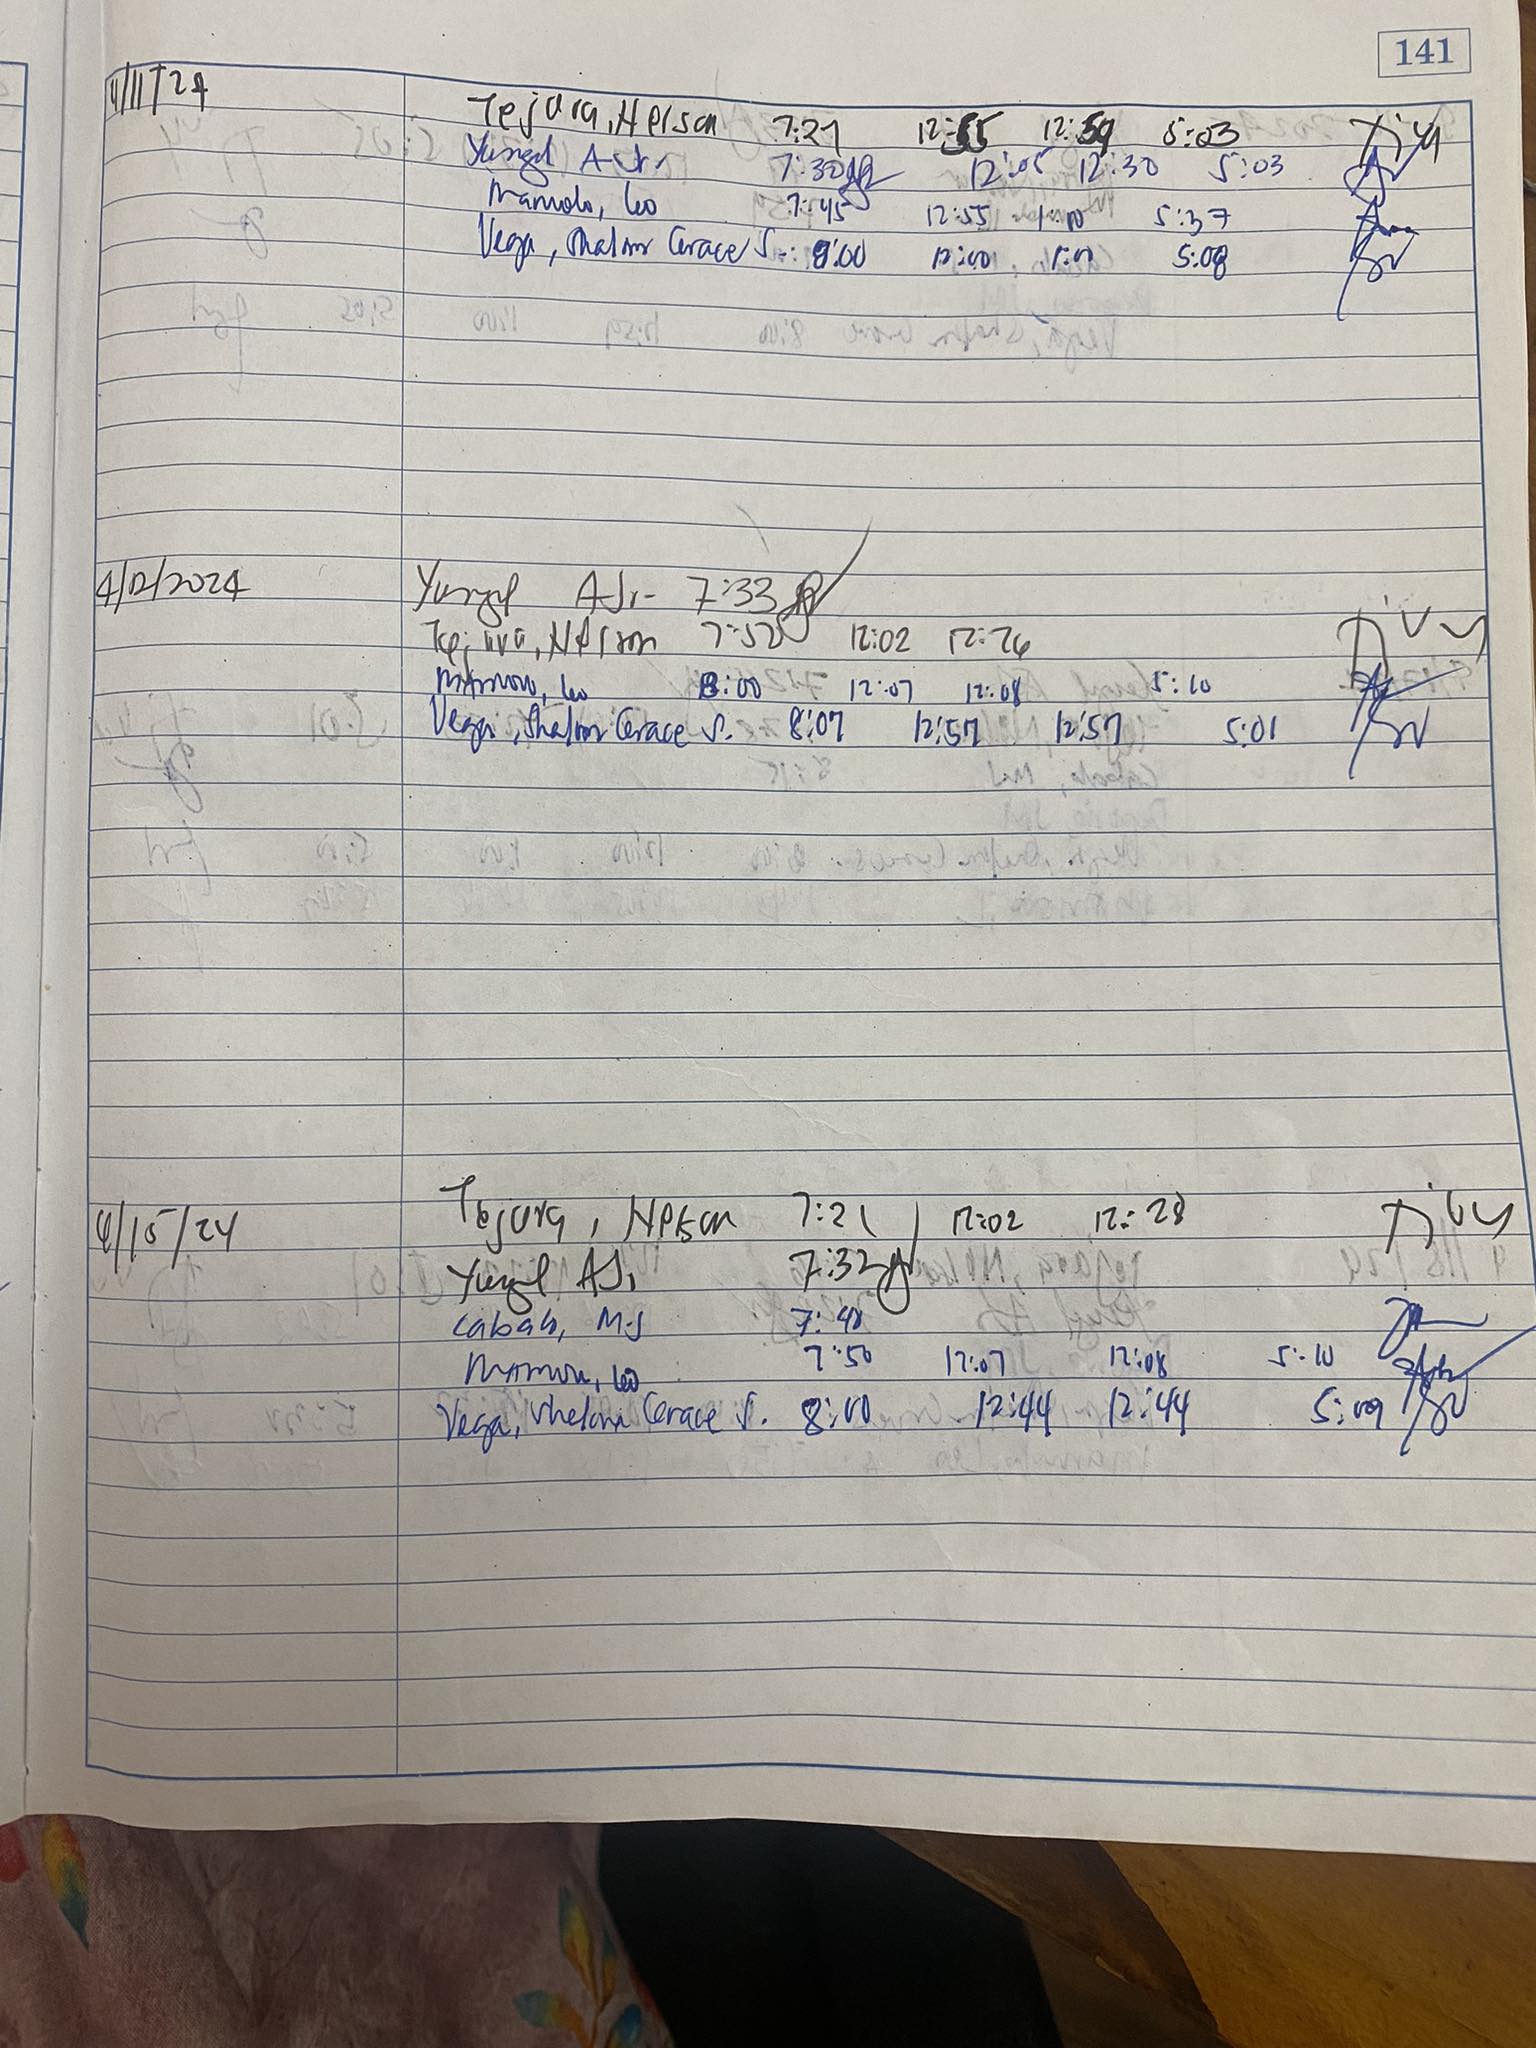 141
4/11/24
Tejura, Nelson 7:21 12:55 12:59 5:03
Yungel A Jr. 7:30 12:05 12:30 5:03
Leo 7:45 12:55 1:10 5:37
Vega, Shalom Grace S. 8:00 12:00 1:00 5:08
4/12/2024 Yungel AJr 7:33
Tejura, Nelson 7:52 12:02 12:26
Leo 8:00 12:07 12:08 5:10
Vega, Shalom Grace S. 8:07 12:57 12:57 5:01
4/15/24 Tejura, Nelson 7:21 12:02 12:28
Yungel AJr 7:32
Cabab, MJ 7:48
Leo 7:50 12:07 12:08 5:10
Vega, Shalom Grace S. 8:00 12:44 12:44 5:09